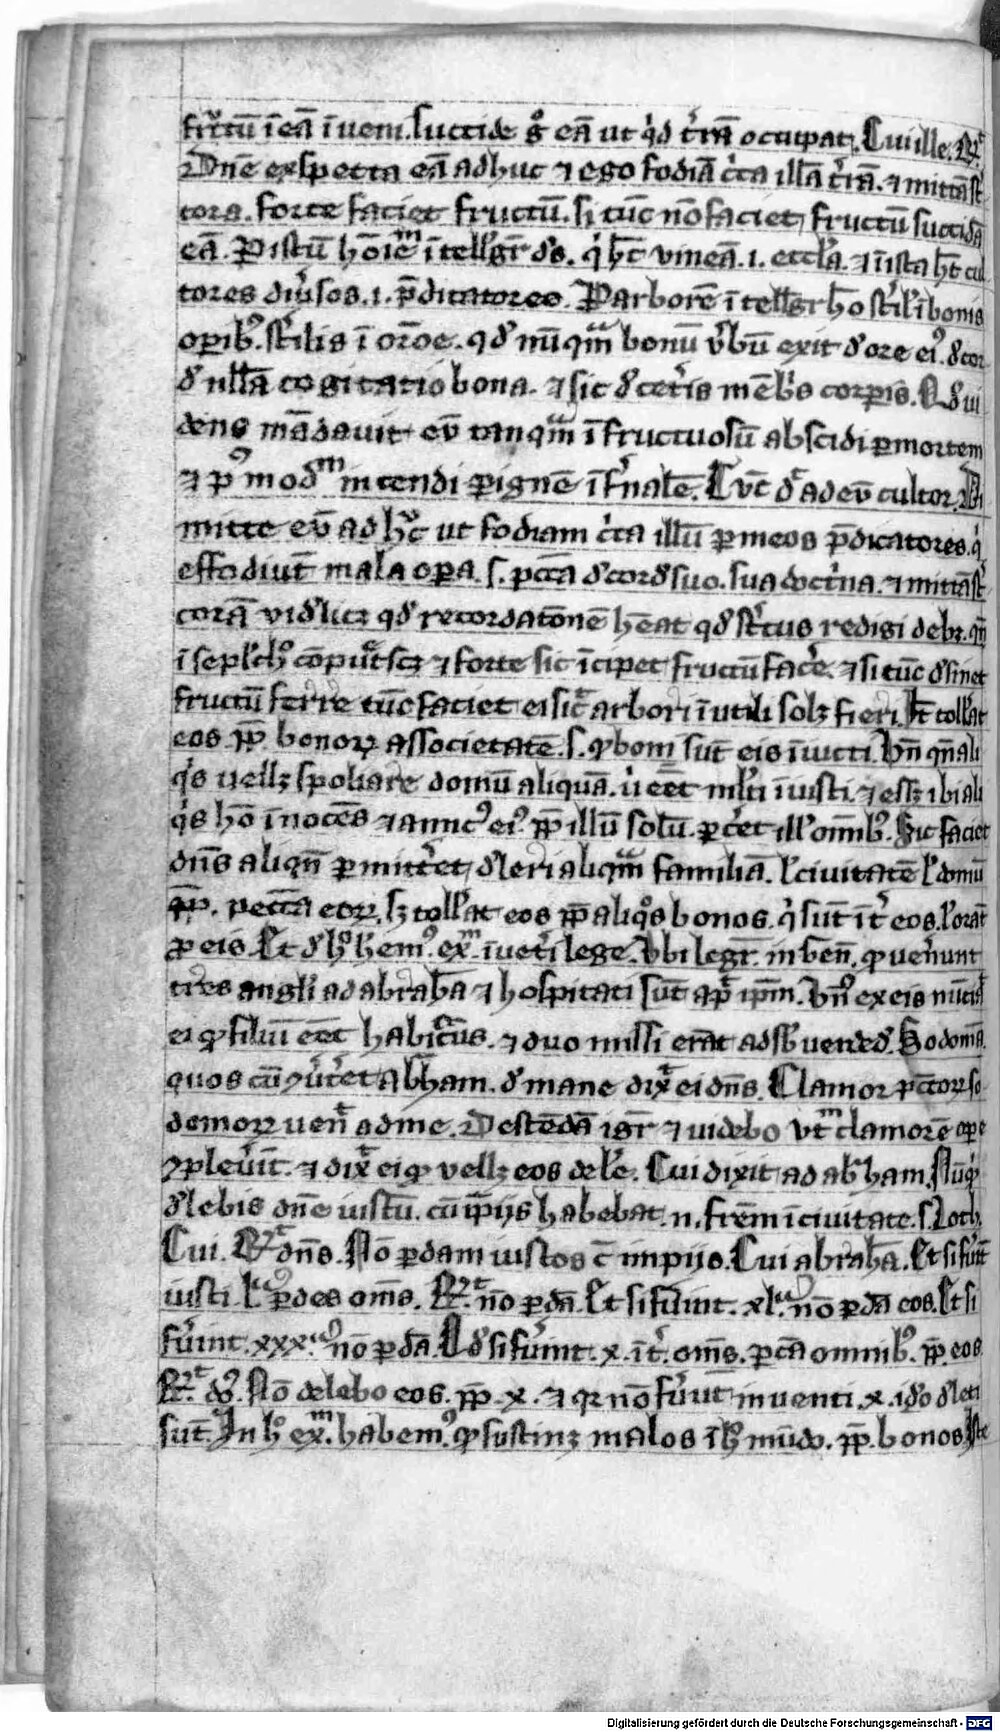 fructū ī eā ī veni. succide g̊ eā ut qͥd t̾rā occupat. Cui ille. R̃t.
Dn̄e exspecta eā adhuc ⁊ ego fodiā cͥca illā t̾rā. ⁊ mittā st̾
cora. forte faciet fructū. si tūc nō faciet fructū succidā
eā. P istū hōiem̄ ītellgr̄ ds̄. qͥ ht̄ vineā .i. eccl̄a. ⁊ ī ista ht̄ cul
tores div̾sos .i. p̄dicatores. P arborē ītell̄gr hō st̾ilˀ ī bonis
oꝑibꝰ. st̾ilis ī orōe. qd̾ nūqͣm bonū v̾bū exit d̾ ore eiꝰ. d̾ cor
d̾ null̄a cogitatio bona. ⁊ sic d̾ cet̾is mēbr̾s corꝑis. Qd̾ vi
dens mādavit eū tanqͣm īfructuosū abscidi ꝑ mortem
⁊ pꝰmodm̄ incendi ꝑ ignē īf̾nalē. Tūc dt̄ ad eū cultor. Di
mitte eū adhͦc ut fodiam cͥca illū ꝑ meos p̄dicatores. qͥ
effodiūt mala opera .s. pctā d̾ cord̾ suo. sua doctͥna. ⁊ mittā st̾
corā videlicꝫ qd̾ recordatōnē hēat qd̾ st̾cus redigi debꝫ. qn̄
ī sepl̾chꝰ cōputͣscꝫ ⁊ forte sic īcipet fructū facere. ⁊ si tūc d̾sinet
fructū ferre tūc faciet ei sic̄ arbori īutili solꝫ fieri. Ht̄ toll̾at
eos ꝓp̄ bonoꝝ associetatē .s. qꝫ boni sūt eis iūcti. Un̄ qn̄ ali
qͥs vellꝫ spoliare domū aliquā. ū eēt mlti īiusti. ⁊ essꝫ ibi ali
qͥs hō īnocēs ⁊ amicꝰ eiꝰ. ꝓp̄ illū solū. ꝑcet ill̾ omībꝰ. Sic faciet
dn̄s aliqn̄ ꝑmitt̾et d̾leri aliqͣm familiā. l̾ civitatē l̾ domū
ꝓp̄. peccta eoꝝ. sꝫ toll̾at eos ꝓp̄ aliqͦs bonos. qͥ sūt īt̾ eos. l̾ orāt
ꝓ eis. Et d̾ hͦ hēmꝰ. exm̄. ī vet̾i lege. Ubi legr̄. in Gen̄. qꝫ ven̾unt
tres angl̾i ad abrahā ⁊ hospitati sūt apͩ ip̄m. Unꝰ ex eis nūciat
ei qꝫ filiū eēt habitͥus. ⁊ duo missi erāt ad subv̾tēdā Sodomā.
quos cū ꝯv̾tet Abhām. d̾ mane dixͭ ei dn̄s. Clamor pcc̄oꝝ so
domoꝝ venͭ ad me. Descēdā igr̄ ⁊ videbo utm̄ clamorē ope
ꝯplev̾it. ⁊ dixͭ ei qꝫ vellꝫ eos delē. Cui dixit ad abhām. Nūqͥd
d̾lebis dn̄e iustū. cū īpiis habebat .n. frēm ī civitate .s. Loth.
Cui. R̃t dn̄s. Nō ꝑdam iustos c̄ impiis. Cui abrahā. Et si fu̾it
iusti .lͣ. ꝑdes om̄s. R̃t. nō ꝑdā. Et si fu̾int .xlͣ. nō ꝑdā eos. Et si
fu̾int .xxxͣ. nō ꝑdā. Qd̾ si fu̾int .x. īt̾ om̄s. ꝑcā omnibꝰ. ꝓp̄. eos.
R̃t. dꝰ. Nō delebo eos. ꝓp̄ .x. ⁊ qr nō fu̾ūt inventi .x. idō d̾leti
sūt. In hͦ exm̄. habemꝰ. qꝫ sustinꝫ malos ī hͦ mūdo. ꝓp̄. bonos. Iste